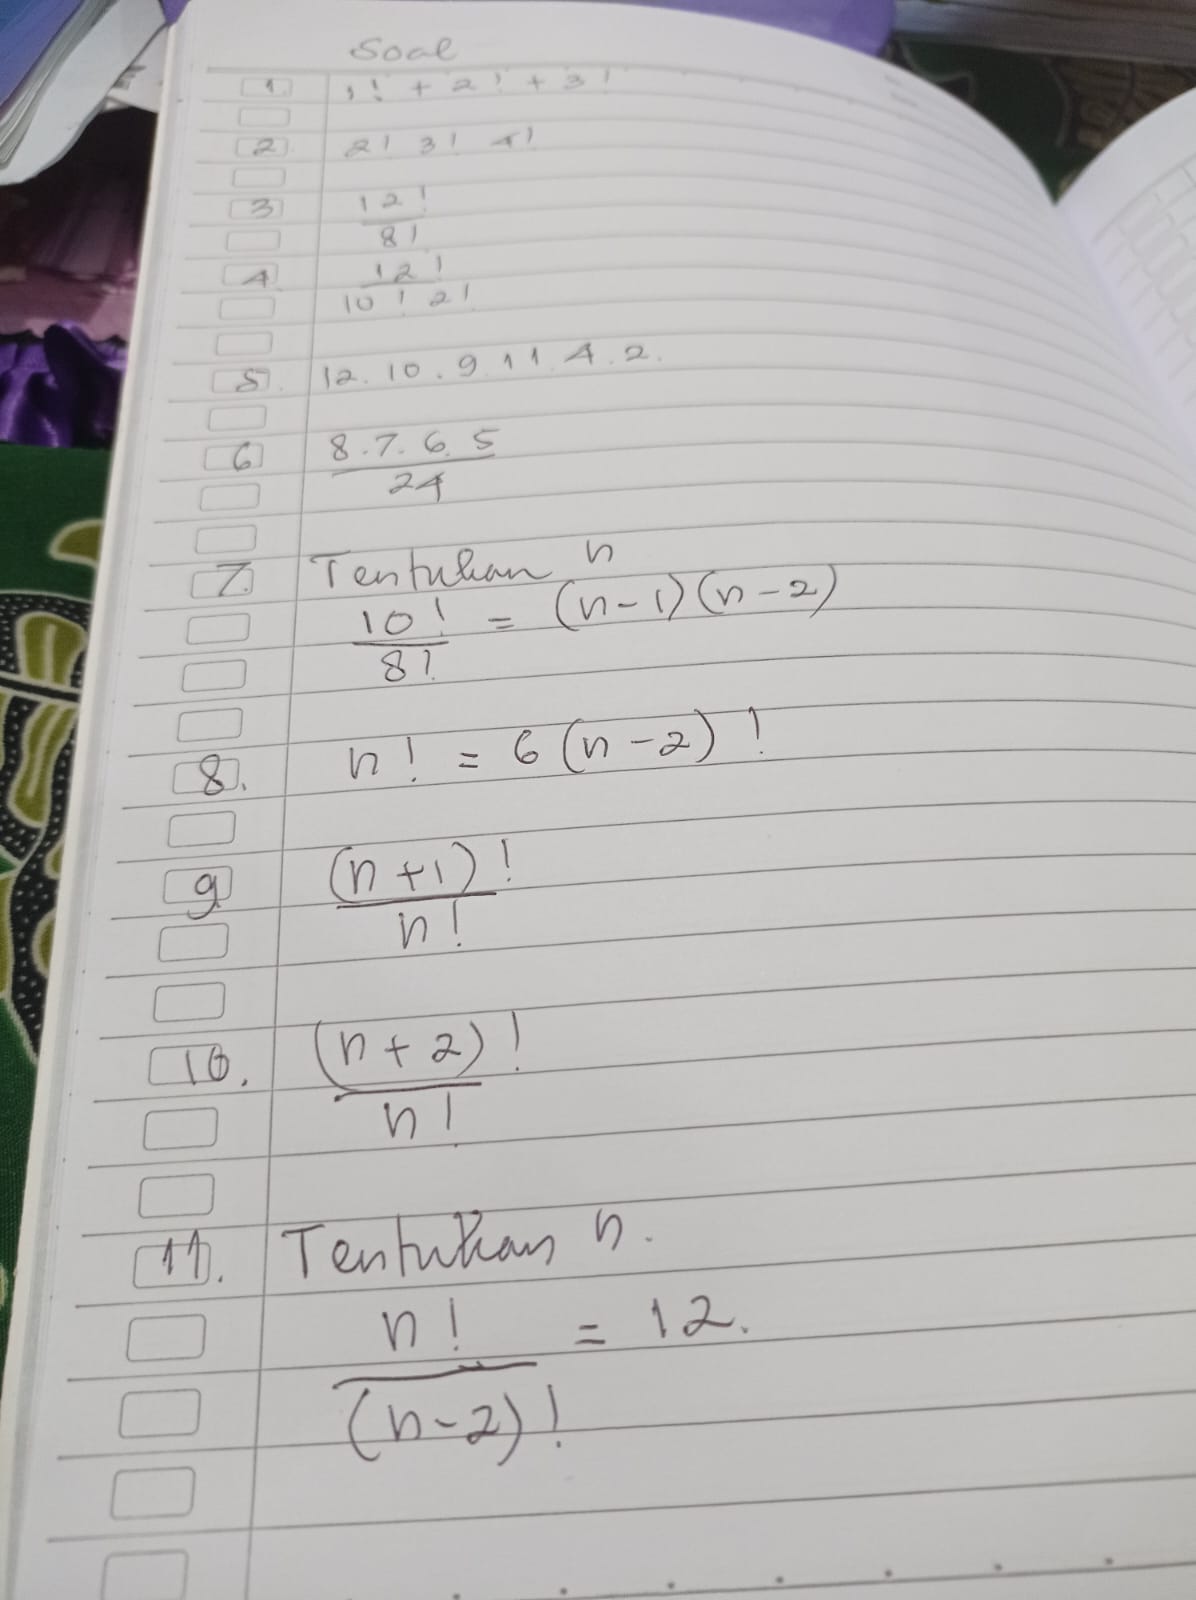 Soal
1 1! + 2! + 3!
2 2! 3! 4!
3 12!
8!
4 12!
10! 2!
5. 12. 10. 9. 11. 4. 2.
6 8.7.6.5
24
7. Tentukan n
10! = (n-1)(n-2)
8!
8. n! = 6(n-2)!
9 (n+1)!
n!
10. (n+2)!
n!
11. Tentukan n.
n! = 12.
(n-2)!